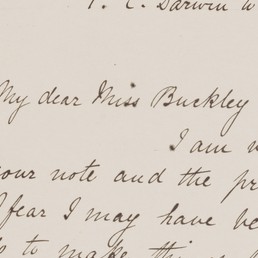 Darwin
My dear Miss Buckley
I am
your note and the
fear I may have
to make